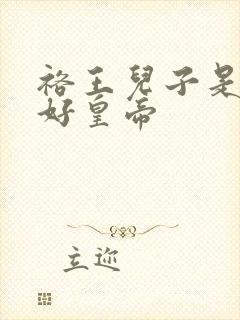 裕王兒子是
好皇帝
立迩